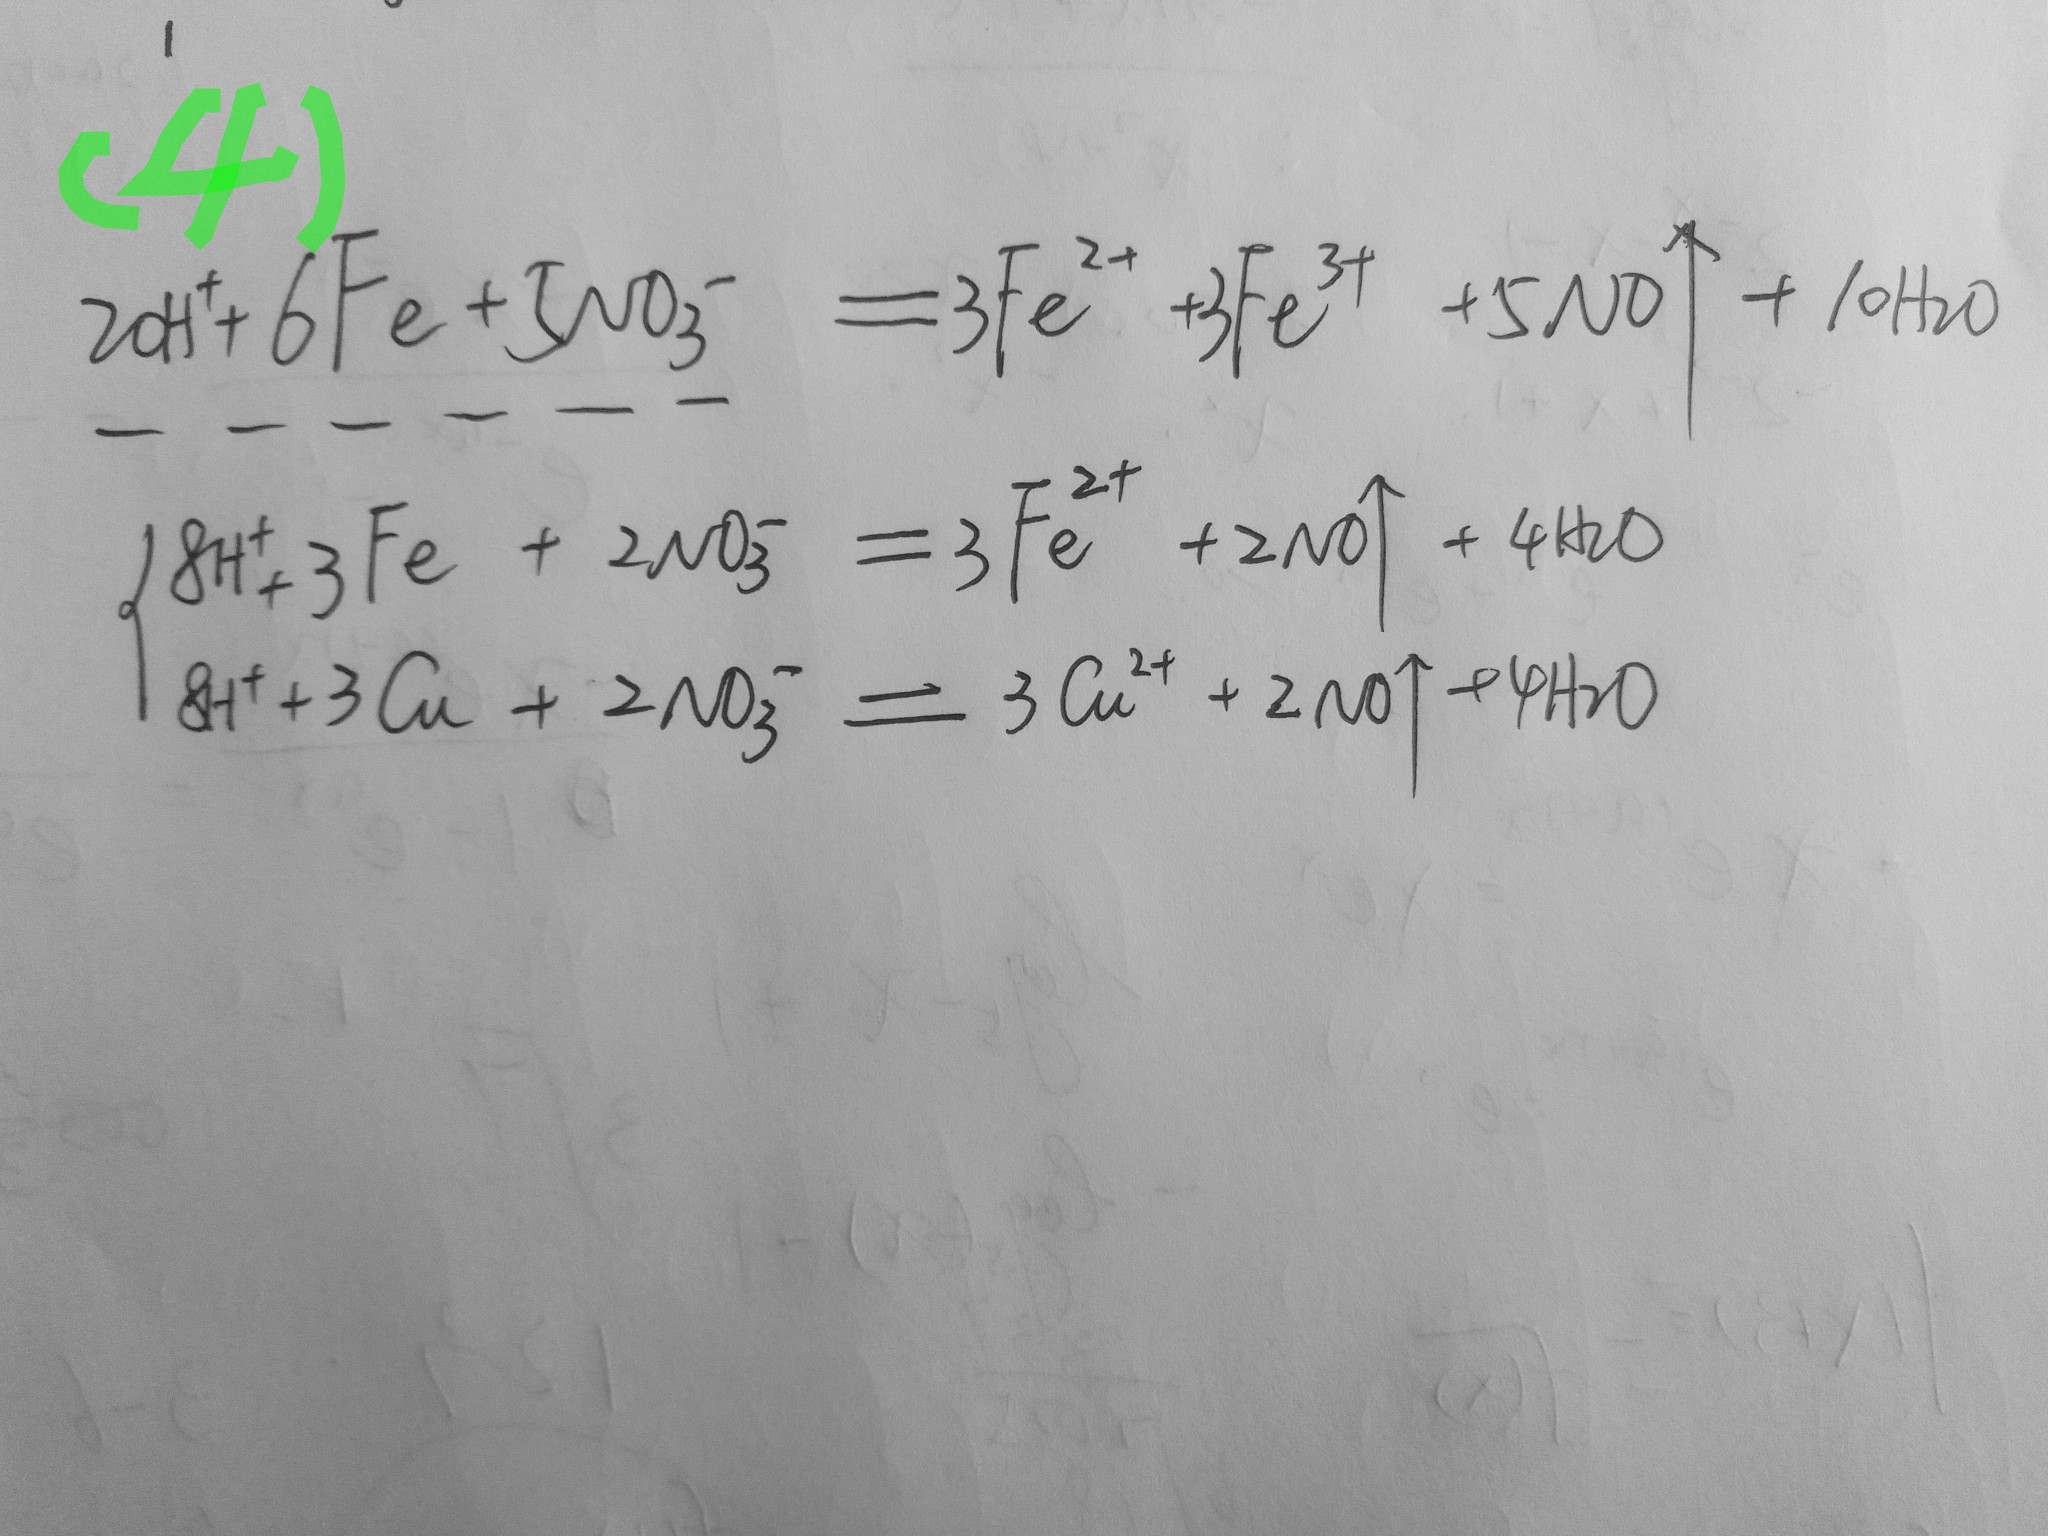 (4)
20H⁺ + 6Fe + 5NO₃⁻ = 3Fe²⁺ + 3Fe³⁺ + 5NO↑ + 10H₂O
8H⁺ + 3Fe + 2NO₃⁻ = 3Fe²⁺ + 2NO↑ + 4H₂O
8H⁺ + 3Cu + 2NO₃⁻ = 3Cu²⁺ + 2NO↑ + 4H₂O